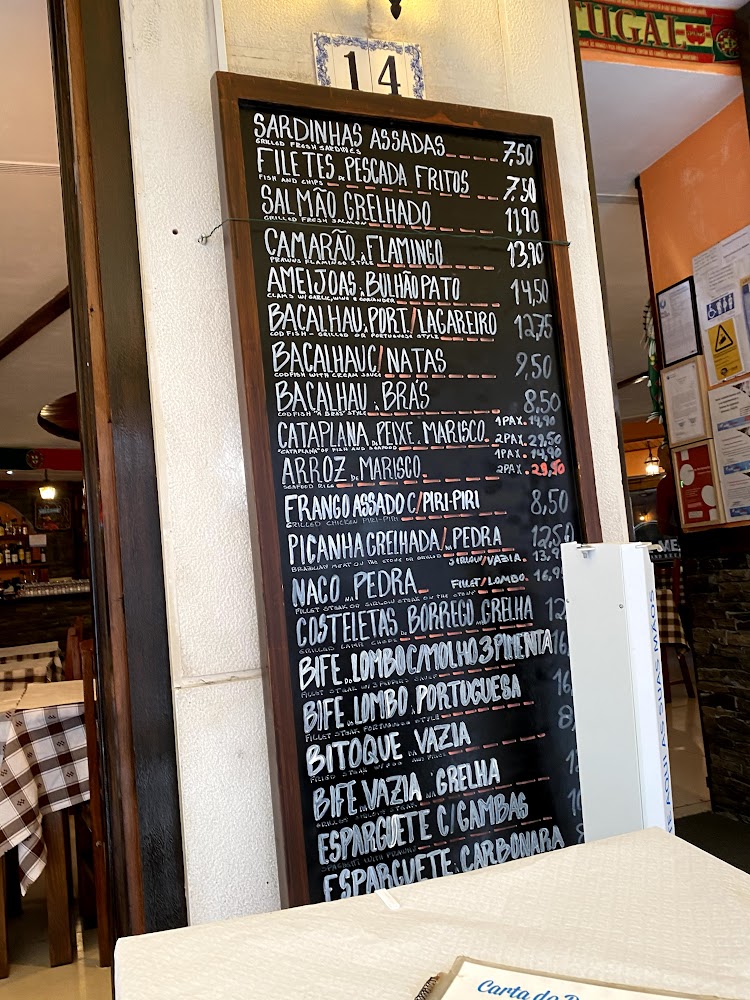 TUGAL
14
SARDINHAS ASSADAS 7,50
GRILLED FRESH SARDINES
FILETES DE PESCADA FRITOS 7,50
FISH AND CHIPS
SALMÃO GRELHADO 11,90
GRILLED FRESH SALMON
CAMARÃO À FLAMINGO 13,90
PRAWNS FLAMINGO STYLE
AMEIJOAS À BULHÃO PATO 14,50
CLAMS W/ GARLIC, WINE & CORIANDER
BACALHAU À PORT./LAGAREIRO 12,75
CODFISH - GRILLED OR PORTUGUESE STYLE
BACALHAU C/ NATAS 9,50
CODFISH WITH CREAM SAUCE
BACALHAU À BRÁS 8,50
CODFISH "A BRÁS" STYLE
CATAPLANA DE PEIXE E MARISCO. 1 PAX. 14,90
"CATAPLANA" OF FISH AND SEAFOOD 2 PAX. 29,50
ARROZ DE MARISCO 1 PAX. 14,90
SEAFOOD RICE 2 PAX. 29,50
FRANGO ASSADO C/ PIRI-PIRI 8,50
GRILLED CHICKEN PIRI-PIRI
PICANHA GRELHADA/NA PEDRA 12,50
BRAZILIAN MEAT ON THE STONE OR GRILLED
SIRLOIN/VAZIA. 13,9
NACO NA PEDRA FILLET/LOMBO. 16,9
FILLET STEAK OR SIRLOIN STEAK ON THE STONE
COSTELETAS DE BORREGO NA GRELHA 12
GRILLED LAMB CHOPS
BIFE DO LOMBO C/ MOLHO 3 PIMENTA 16
FILLET STEAK W/ 3 PEPPERS SAUCE
BIFE DE LOMBO À PORTUGUESA 16
FILLET STEAK PORTUGUESE STYLE
BITOQUE DA VAZIA 8
FRIED STEAK W/ EGG AND FRIES
BIFE DA VAZIA NA GRELHA 1
ESPARGUETE C/ GAMBAS 10
SPAGHETTI WITH PRAWNS
ESPARGUETE À CARBONARA
E AQUI AS SUAS MÃOS
Carta de